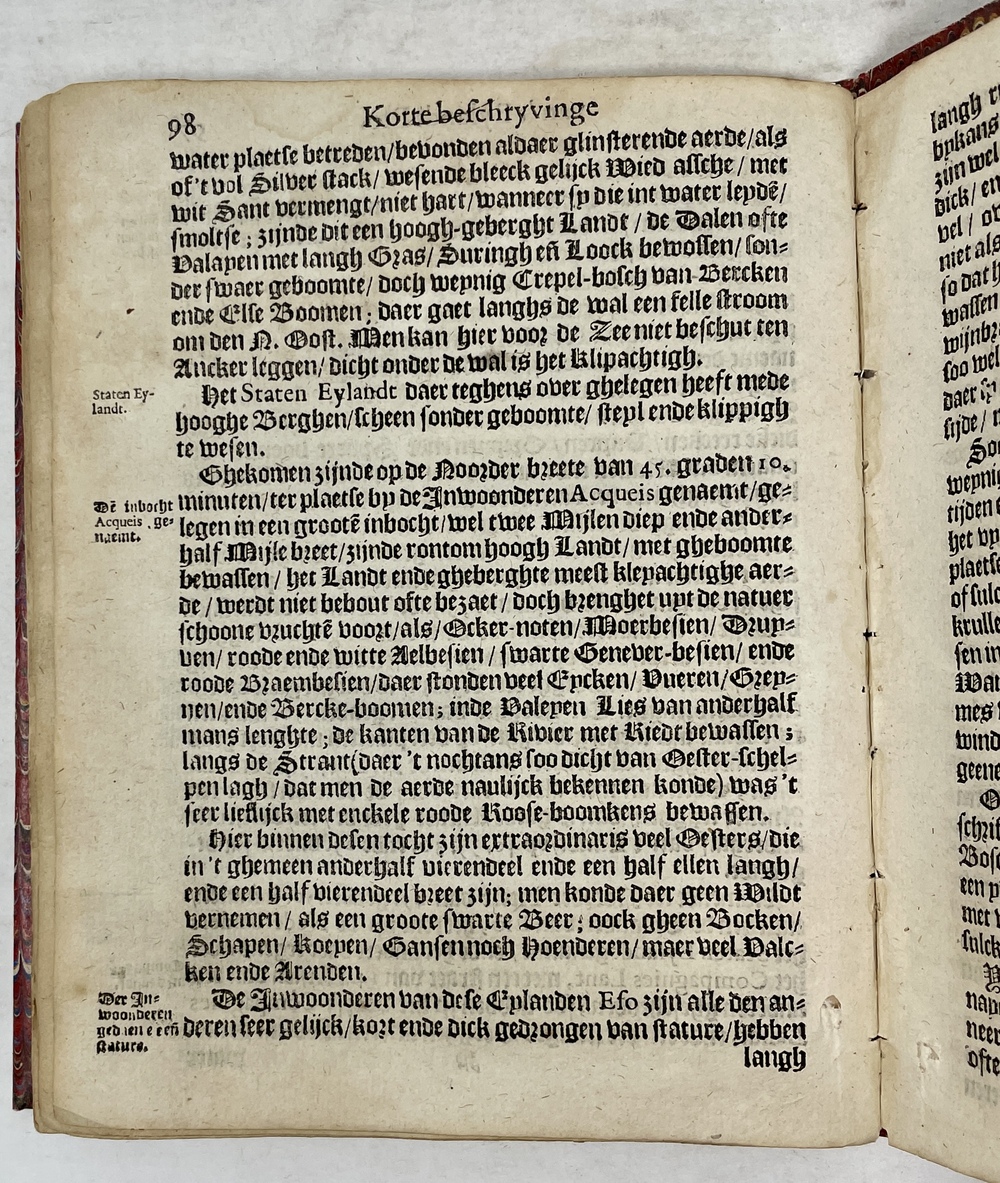 98
Korte beschryvinge
water plaetse betreden/bevonden aldaer glinsterende aerde/als
of 't vol Silver stack/ wesende bleeck gelijck Wied assche/ met
wit Sant vermengt/niet hart/wanneer sy die int water leydẽ/
smoltse; zijnde dit een hoogh-geberght Landt/ de Dalen ofte
Valayen met langh Gras/ Suringh eñ Loock bewossen/ son-
der swaer geboomte/ doch weynig Crepel-bosch van Bercken
ende Else Boomen; daer gaet langhs de wal een felle stroom
om den N. Oost. Men kan hier voor de Zee niet beschut ten
Ancker leggen/ dicht onder de wal is het klipachtigh.
Staten Ey-
landt.
Het Staten Eylandt daer teghens over ghelegen heeft mede
hooghe Berghen/scheen sonder geboomte/ steyl ende klippigh
te wesen.
Ghekomen zijnde op de Noorder breete van 45. graden 10.
Dẽ inbocht
Acqueis ge-
naemt.
minuten/ter plaetse by de Inwoonderen Acqueis genaemt/ge-
legen in een grootẽ inbocht/wel twee Mijlen diep ende ander-
half Mijle breet/zijnde rontom hoogh Landt/ met gheboomte
bewassen/ het Landt ende gheberghte meest kleyachtighe aer-
de/ werdt niet bebout ofte bezaet/ doch brenghet uyt de natuer
schoone vruchtẽ voort/als/Ocker-noten/Moerbesien/ Druy-
ven/ roode ende witte Aelbesien/ swarte Genever-besien/ ende
roode Braembesien/daer stonden veel Eycken/ Vueren/Grey-
nen/ende Bercke-boomen; inde Valeyen Lies van anderhalf
mans lenghte; de kanten van de Rivier met Riedt bewassen;
langs de Strant(daer 't nochtans soo dicht van Oester-schel-
pen lagh/dat men de aerde naulijck bekennen konde) was 't
seer lieflijck met enckele roode Roose-boomkens bewassen.
Hier binnen desen tocht zijn extraordinaris veel Oesters/die
in 't ghemeen anderhalf vierendeel ende een half ellen langh/
ende een half vierendeel breet zijn; men konde daer geen Wildt
vernemen/ als een groote swarte Beer; oock gheen Bocken/
Schapen/ Koeyen/ Gansen noch Hoenderen/ maer veel Valc-
ken ende Arenden.
Der In-
woonderen
stature.
De Inwoonderen van dese Eylanden Eso zijn alle den an-
deren seer gelijck/kort ende dick gedrongen van stature/hebben
langh